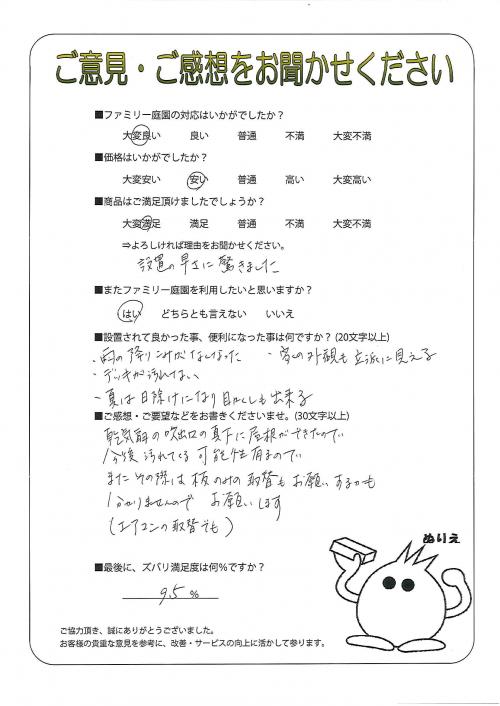 ご意見・ご感想をお聞かせください
■ファミリー庭園の対応はいかがでしたか？
大変良い 良い 普通 不満 大変不満
■価格はいかがでしたか？
大変安い 安い 普通 高い 大変高い
■商品はご満足頂けましたでしょうか？
大変満足 満足 普通 不満 大変不満
⇒よろしければ理由をお聞かせください。
設置の早さに驚きました
■またファミリー庭園を利用したいと思いますか？
はい どちらとも言えない いいえ
■設置されて良かった事、便利になった事は何ですか？(20文字以上)
・雨の降りこみがなくなった ・家の外観も立派に見える
・デッキが汚れない
・夏は日除けになり目かくしも出来る
■ご感想・ご要望などをお書きくださいませ。(30文字以上)
乾気扇の吹出口の真下に屋根ができたので
今後汚れてくる可能性有るので
またその際は板のみの取替もお願いするかも
分かりませんので お願いします
(エアコンの取替も)
ぬりえ
■最後に、ズバリ満足度は何％ですか？
95 %
ご協力頂き、誠にありがとうございました。
お客様の貴重な意見を参考に、改善・サービスの向上に活かして参ります。